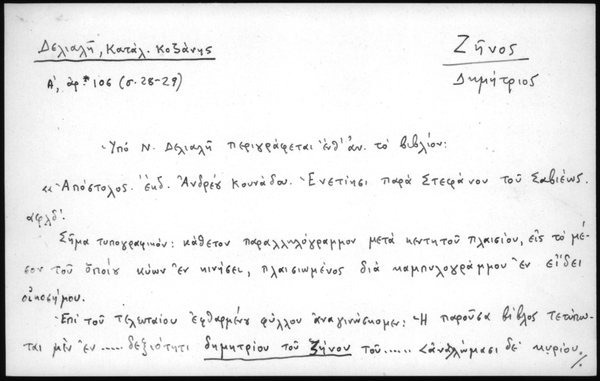 Δελιαλῆ, Κατάλ. Κοζάνης
Ζῆνος
Α΄, ἀρ. 106 (σ. 28-29)
Δημήτριος
Ὑπό Ν. Δελιαλῆ περιγράφεται ἐνθ' ἀν. τό βιβλίον:
«Ἀπόστολος. ἐκδ. Ἀνδρέου Κουνάδου. Ἐνετίησι παρά Στεφάνου τοῦ Σαβιέως.
αφλδ΄.
Σῆμα τυπογραφικόν: κάθετον παραλληλόγραμμον μετά κεντητοῦ πλαισίου, εἰς τό μέ-
σον τοῦ ὁποίου κύων ἐν κινήσει, πλαισιωμένος διά καμπυλογράμμου ἐν εἴδει
οἰκοσήμου.
Ἐπί τοῦ τελευταίου ἐφθαρμένου φύλλου ἀναγινώσκομεν: Ἡ παροῦσα βίβλος τετύπω-
ται μέν ἐν ..... δεξιότητι δημητρίου τοῦ ζήνου τοῦ ..... ἀναλώμασι δέ κυρίου.